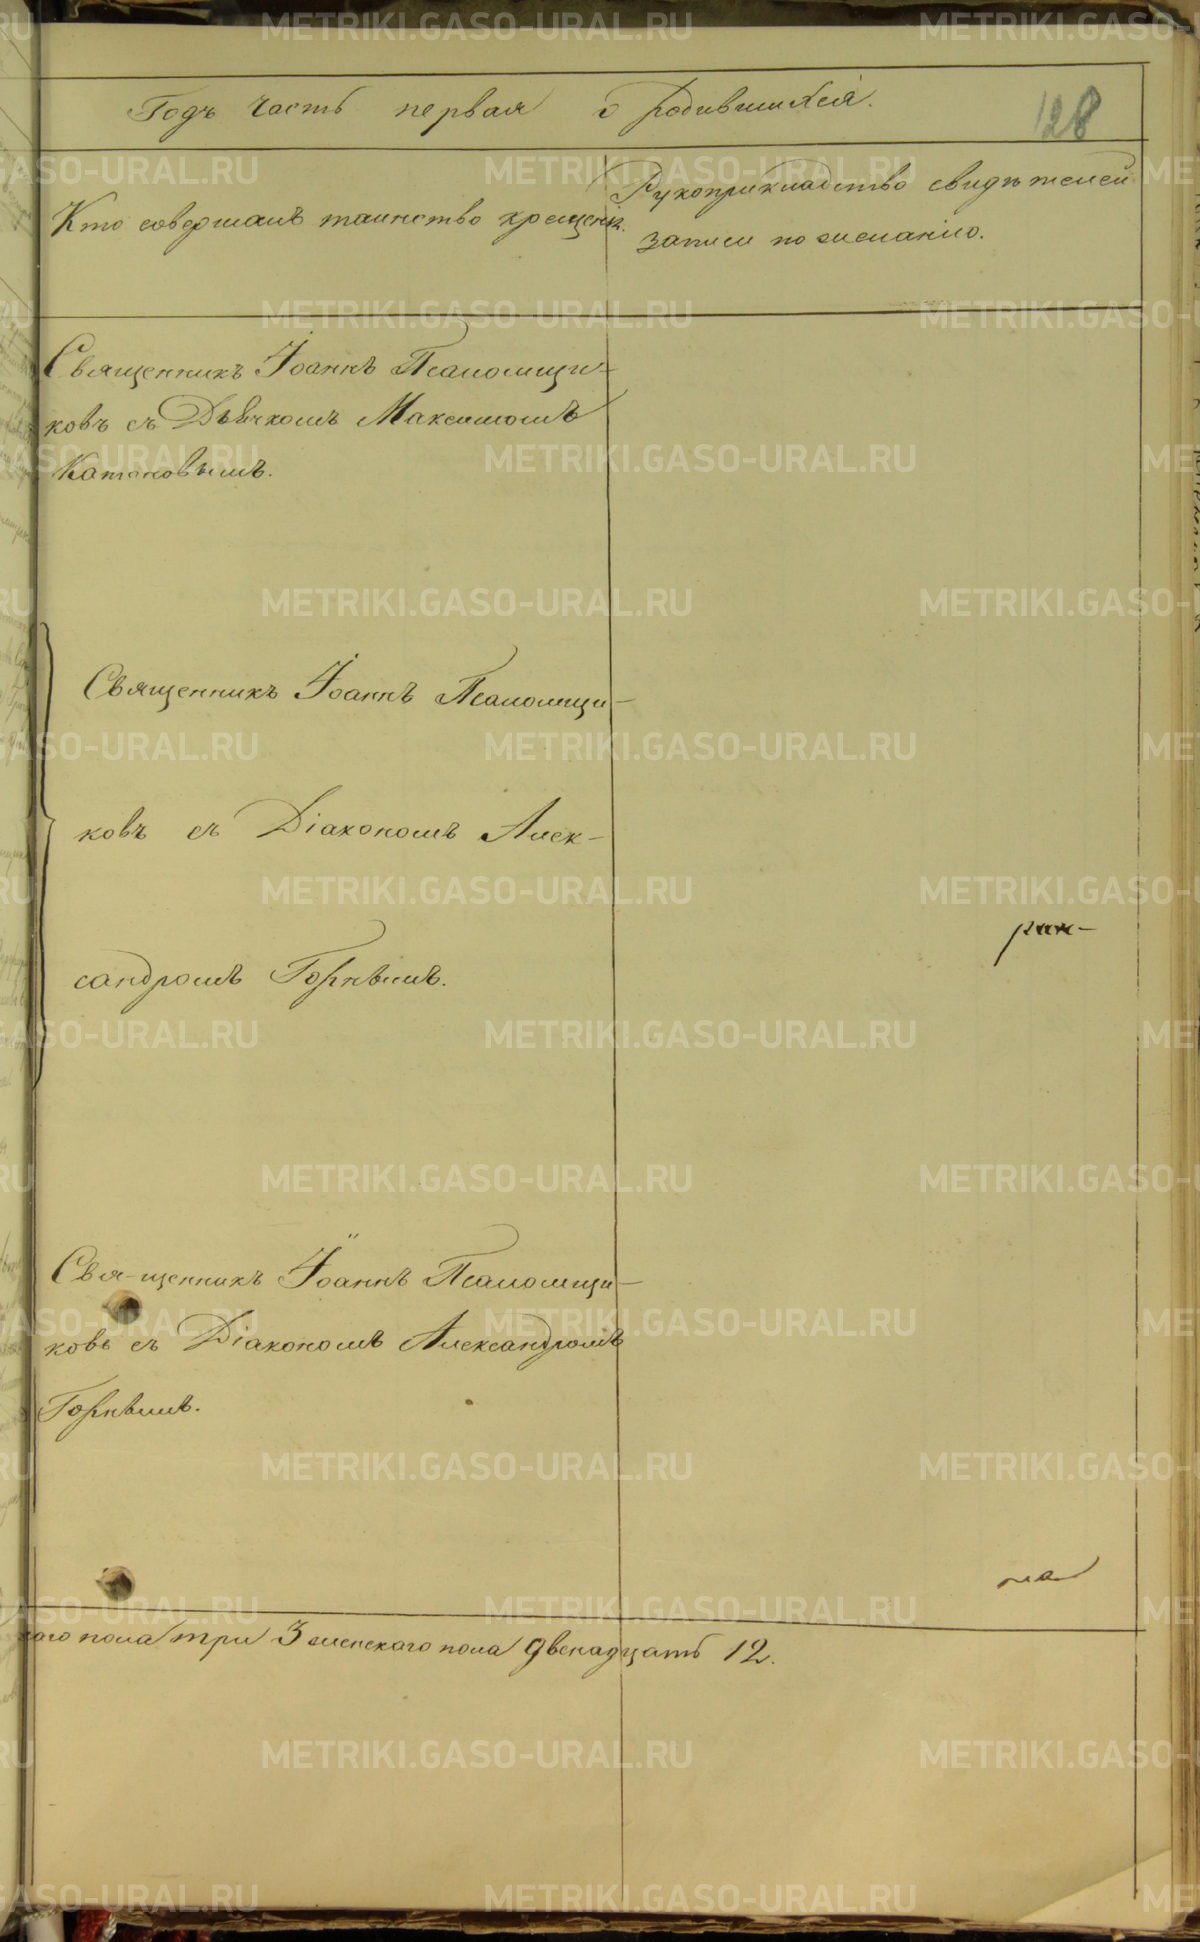 Годъ часть первая о родившихся.
128
Кто совершалъ таинство крещенія.
Рукоприкладство свидѣтелей
записи по желанію.
Священникъ Іоаннъ Псаломщи-
ковъ съ Дьячкомъ Максимомъ
Катановымъ.
Священникъ Іоаннъ Псаломщи-
ковъ съ Діакономъ Алек-
сандромъ Горнымъ.
Свя-щенникъ Іоаннъ Псаломщи-
ковъ съ Діакономъ Александромъ
Горнымъ.
пола три 3 женскаго пола двенадцать 12.
METRIKI.GASO-URAL.RU